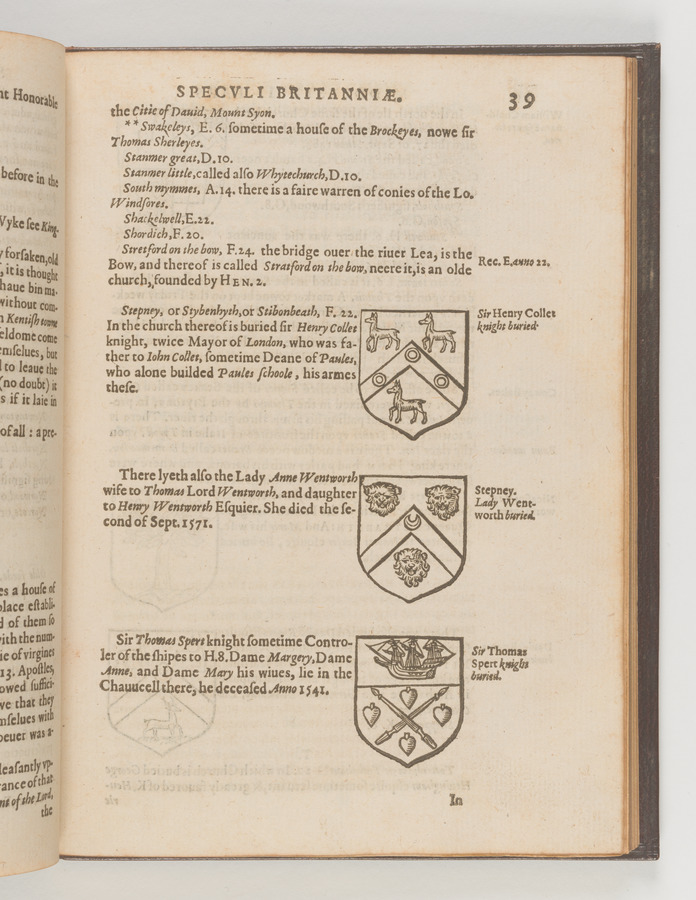 nt Honorable
before in the
Vyke ſee King-
y forſaken, old
, it is thought
haue bin ma-
without com-
n Kentiſh towne
eldome come
emſelues, but
d to leaue the
(no doubt) it
s if it laie in
of all : a pre-
es a houſe of
place eſtabli-
d of them ſo
ith the num-
ie of virgines
13. Apoſtles,
owed ſuffici-
ve that they
mſelues with
oeuer was a-
leaſantly vp-
rance of that
nt of the Lord,
the
SPECVLI BRITANNIÆ.
39
the Citie of Dauid, Mount Syon.
** Swakeleys, E. 6. ſometime a houſe of the Brockeyes, nowe ſir
Thomas Sherleyes.
Stanmer great, D. 10.
Stanmer little, called alſo Whytechurch, D. 10.
South mymmes, A. 14. there is a faire warren of conies of the Lo.
Windſores.
Shackelwell, E. 22.
Shordich, F. 20.
Stretford on the bow, F. 24. the bridge ouer the riuer Lea, is the
Bow, and thereof is called Stratford on the bow, neere it, is an olde
church, founded by HEN. 2.
Rec. E. anno 22.
Stepney, or Stybenhyth, or Stibonheath, F. 22.
In the church thereof is buried ſir Henry Collet
knight, twice Mayor of London, who was fa-
ther to Iohn Collet, ſometime Deane of Paules,
who alone builded Paules ſchoole, his armes
theſe.
Sir Henry Collet
knight buried.
There lyeth alſo the Lady Anne Wentworth
wife to Thomas Lord Wentworth, and daughter
to Henry Wentworth Eſquier. She died the ſe-
cond of Sept. 1571.
Stepney.
Lady Went-
worth buried.
Sir Thomas Spert knight ſometime Contro-
ler of the ſhipes to H. 8. Dame Margery, Dame
Anne, and Dame Mary his wiues, lie in the
Chauucell there, he deceaſed Anno 1541.
Sir Thomas
Spert knight
buried.
In